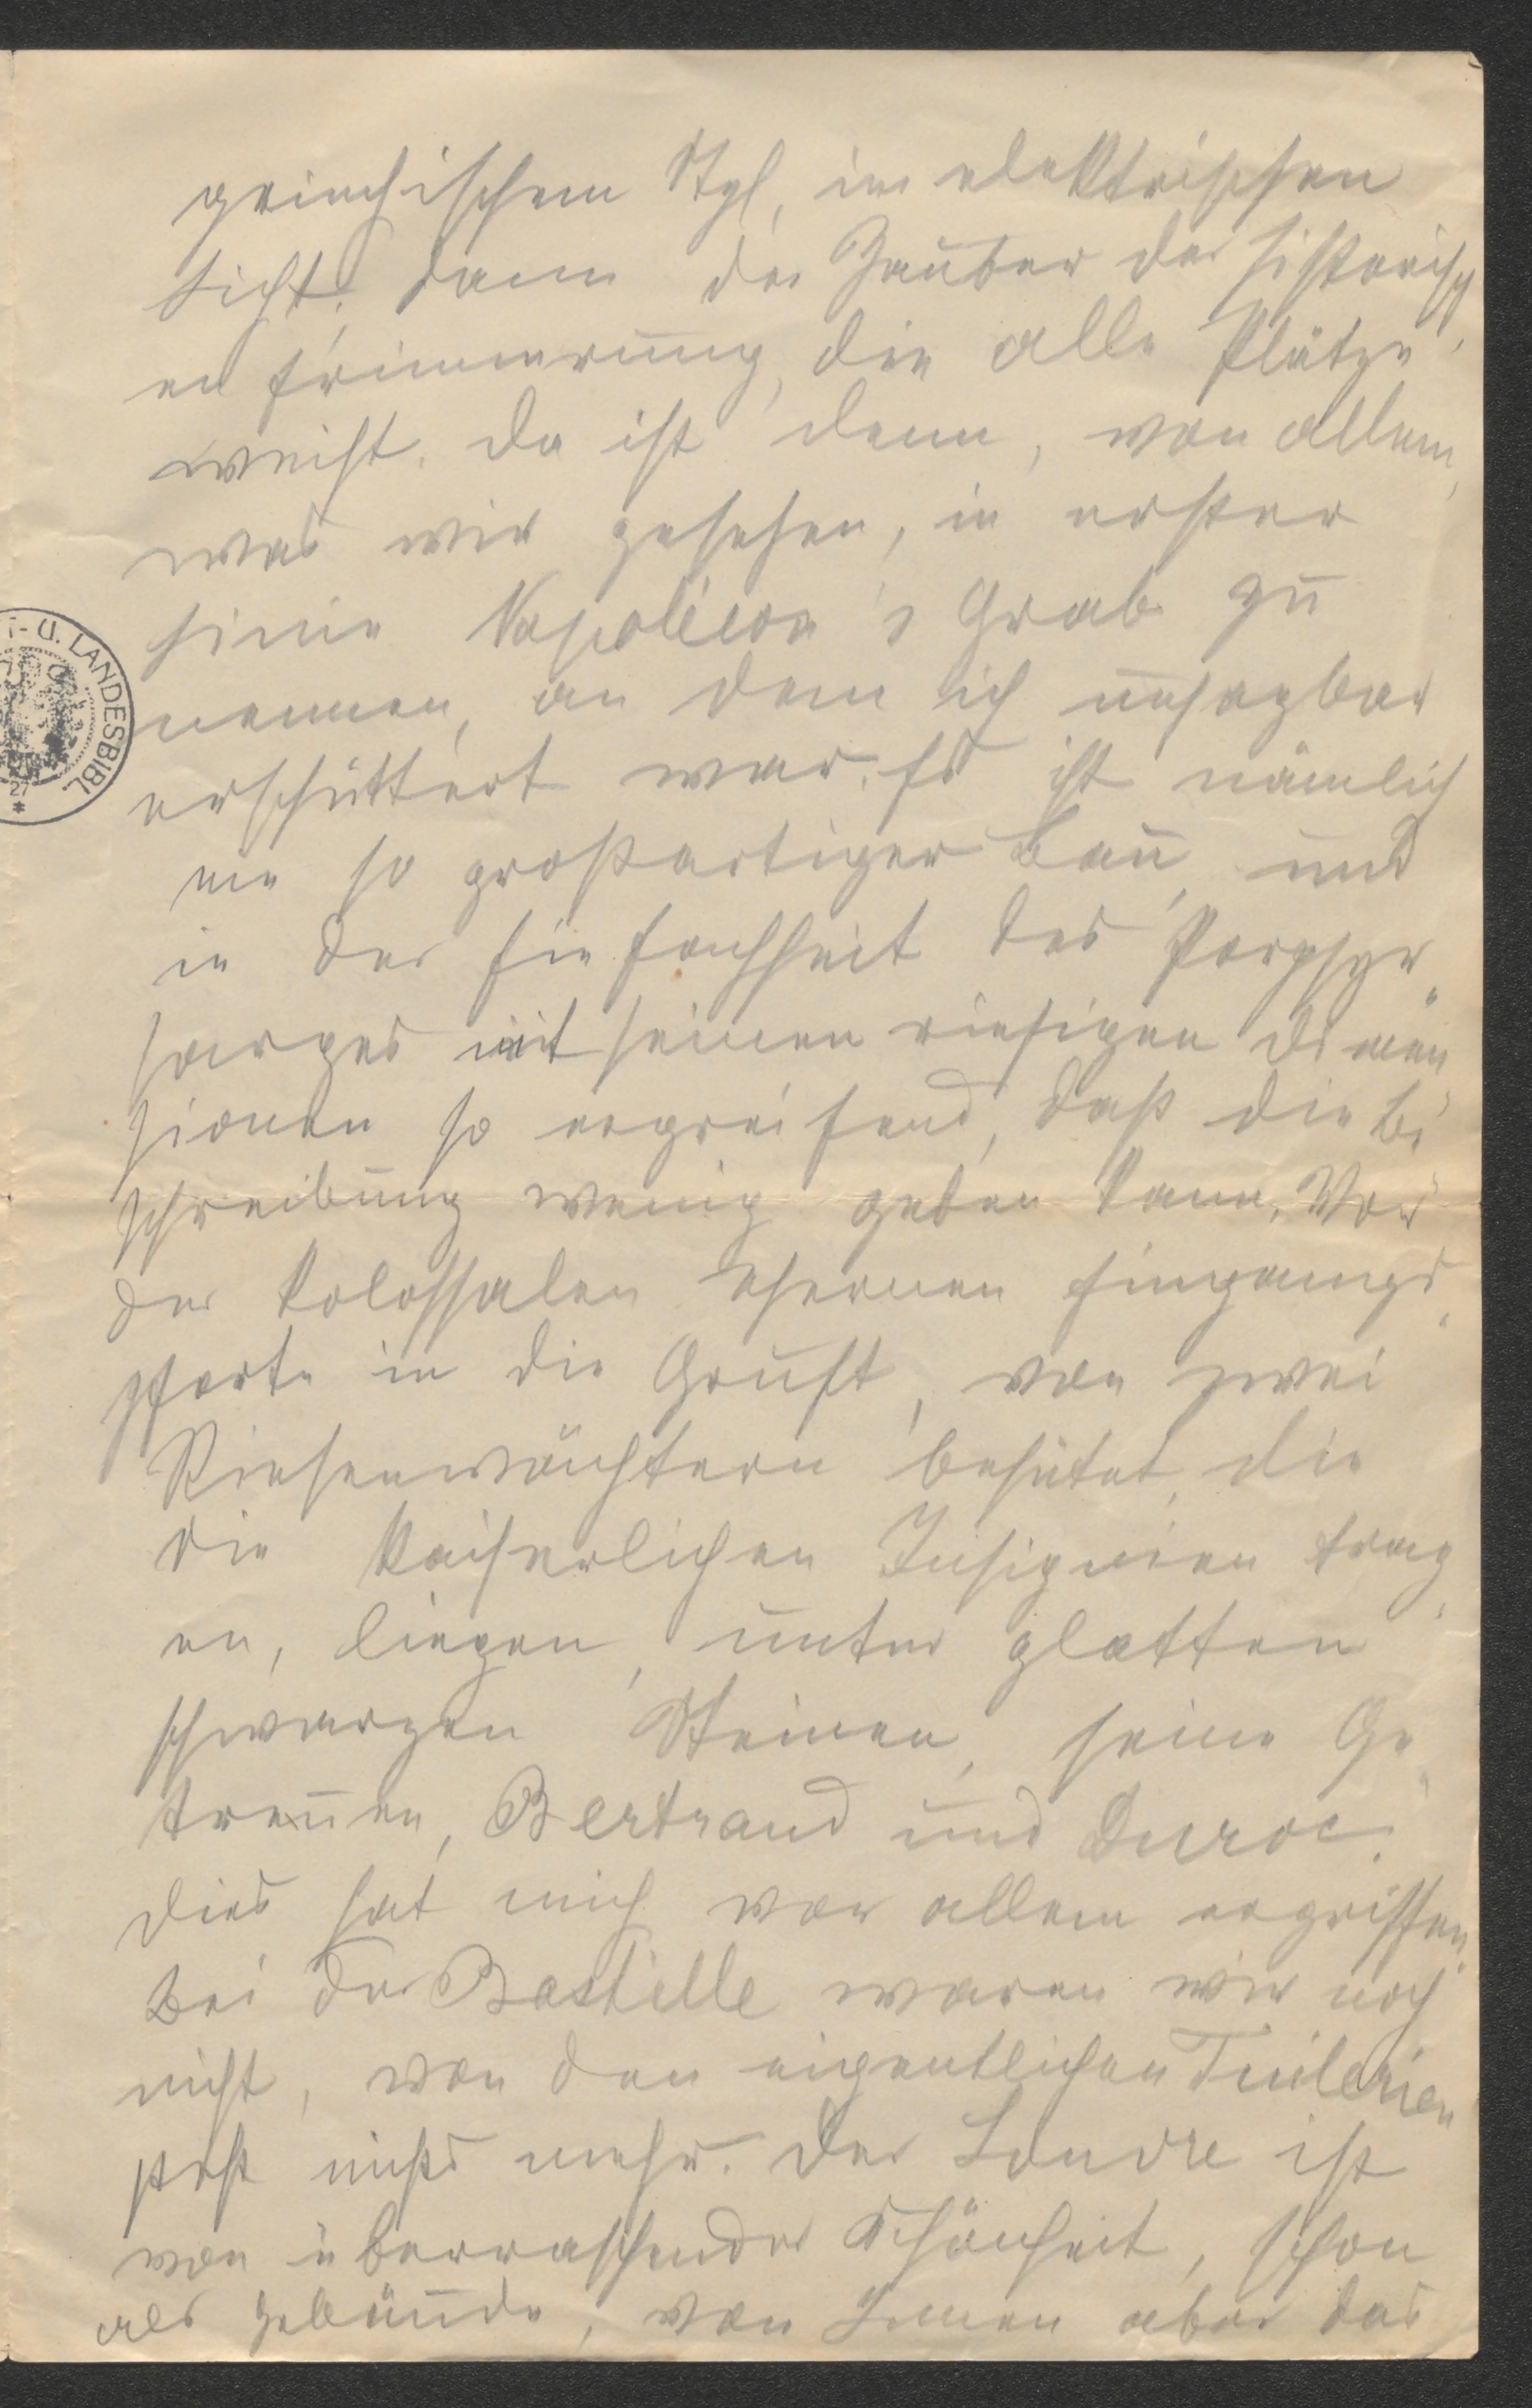 griechischem Styl, im elektrischen
Licht; dann der Zauber der historisch
en Erinnerung, die alle Plätze
weiht. Da ist denn, von allem,
was wir gesehen, in erster
Linie Napoléon's Grab zu
nennen, an dem ich unsagbar
erschüttert war. Es ist nämlich
ein so großartiger Bau, und
in der Einfachheit des Porphyr„
sarges mit seinen riesigen Dimen„
sionen so ergreifend, daß die Be„
schreibung wenig geben kann. Vor
der kolossalen ehernen Eingangs„
pforte in die Gruft, von zwei
Riesenwächtern behütet, die
die kaiserlichen Insignien trag„
en, liegen, unter glatten
schwarzen Steinen, seine Ge„
treuen, Bertrand und Duroc.
Dies hat mich vor allem ergriffen.
Bei der Bastille waren wir noch
nicht, von den eigentlichen Tuilerien
steht nichts mehr. Der Louvre ist
von überraschender Schönheit, schon
als Gebäude, von Innen aber das
T- U. LANDESBIBL.